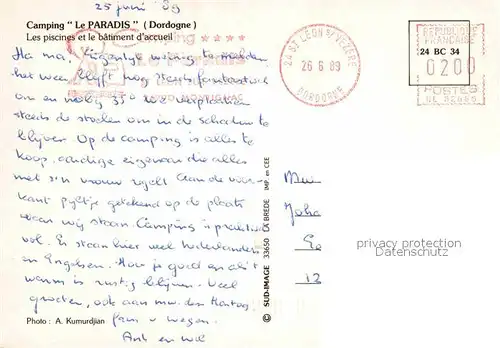 25 juni '89
Camping "Le PARADIS" (Dordogne)
Les piscines et le bâtiment d'accueil
Camping ★★★★
Ha ma, Eigenlijk weinig te melden
het weer blijft nog steeds fantastisch
om en nabij 35° we verplaatsen
steeds de stoelen om in de schaduw te
blijven. Op de camping is alles te
koop, aardige eigenaar die alles
met z'n vrouw regelt. Aan de voor-
kant pijltje getekend op de plaats
waar wij staan. Camping is praktisch
vol. Er staan hier veel Nederlanders
en Engelsen. Hou je goed en als 't
warm is rustig blijven. Veel
groeten, ook aan mw. den Hartog,
fam. v Wegen.
Ank en Wil
Photo : A. Kumurdjian
© SUD-IMAGE 33650 LA BREDE IMP. en CEE
24 ST LEON S/VEZERE
26 6 89
DORDOGNE
REPUBLIQUE
FRANCAISE
24 BC 34
0200
POSTES
Mw
Joha
12
privacy protection
Datenschutz